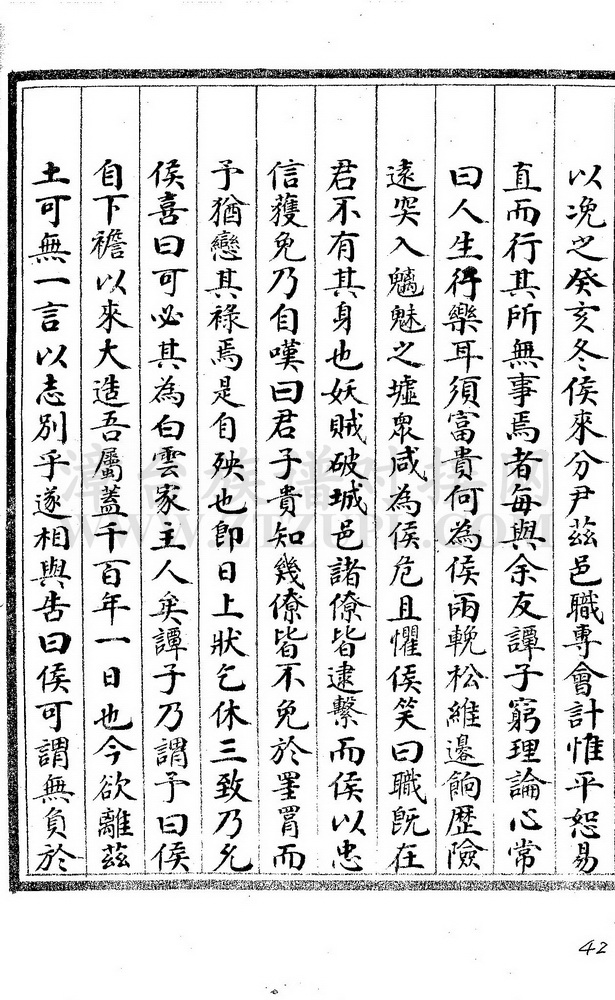 以浼之癸亥冬侯來分尹茲邑職專會計惟平恕易
直而行其所無事焉者每與余友譚子窮理論心常
曰人生行樂耳須富貴何為侯兩輓松維邊餉歷險
遠突入魑魅之墟眾咸為侯危且懼侯笑曰職既在
君不有其身也妖賊破城邑諸僚皆逮繫而侯以忠
信獲免乃自嘆曰君子貴知幾僚皆不免於罣罥而
予猶戀其祿焉是自殃也即日上狀乞休三致乃允
侯喜曰可必其為白雲家主人矣譚子乃謂予曰侯
自下襜以來大造吾屬蓋千百年一日也今欲離茲
土可無一言以志別乎遂相與告曰侯可謂無負於
42
漳台族谱对接网
WWW.ZTZUPU.COM